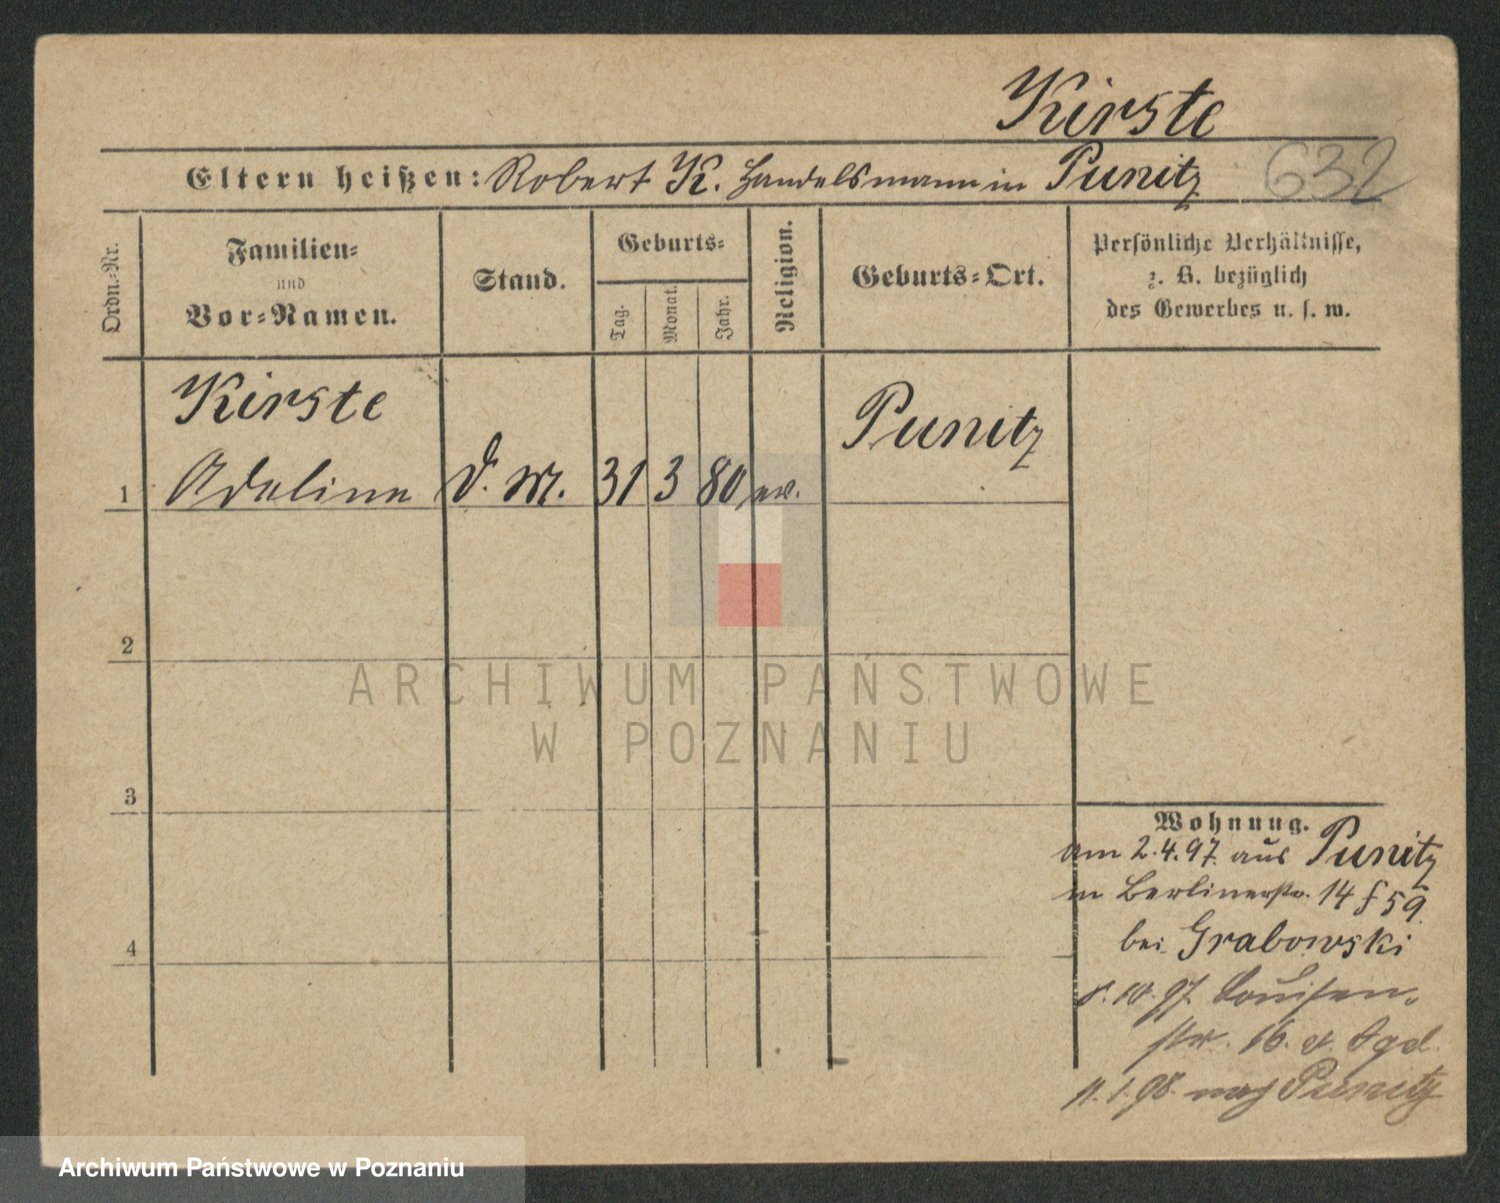 Kirste
632
Eltern heißen: Robert K. Handelsmann in Punitz
Ordn.-Nr.
Familien-
und
Vor-Namen.
Stand.
Geburts-
Tag.
Monat.
Jahr.
Religion.
Geburts-Ort.
Persönliche Verhältnisse,
z. B. bezüglich
des Gewerbes u. s. w.
Kirste
Punitz
1 Adeline d. M. 31 3 80 ev.
2
ARCHIWUM PAŃSTWOWE
W POZNANIU
3
Wohnung.
am 2.4.97. aus Punitz
in Berlinerstr. 14 f 59
bei Grabowski
10. 97. Louisen-
str. 16.
11. 1. 98. nach Punitz
4
Archiwum Państwowe w Poznaniu